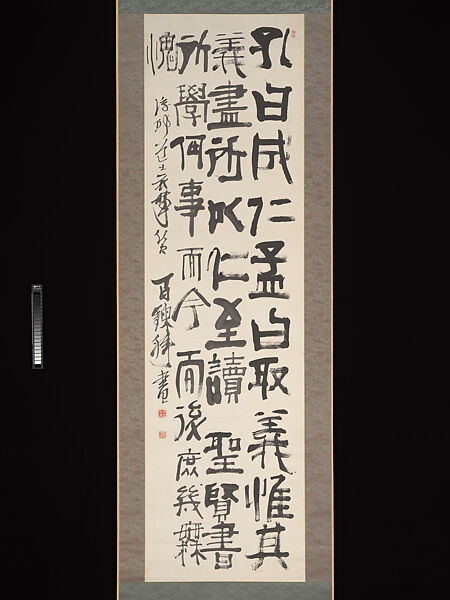 孔曰成仁孟曰取義惟其
義盡所以仁至讀聖賢書
所學何事而今而後庶幾無
愧
衣帶贊
百鍊 書